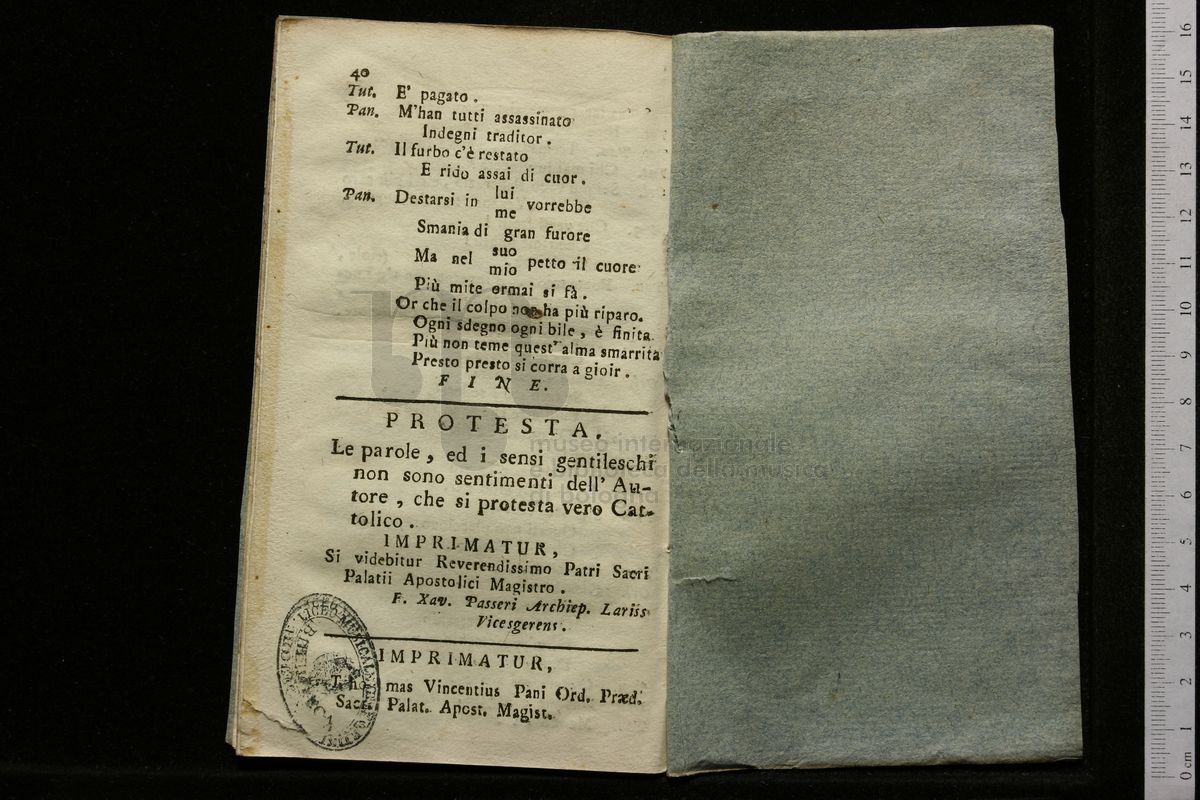 40
Tut. E' pagato.
Pan. M'han tutti assassinato
Indegni traditor.
Tut. Il furbo c'è restato
E rido assai di cuor.
Pan. Destarsi in lui vorrebbe
me
Smania di gran furore
Ma nel suo petto il cuore
mio
Più mite ormai si fà.
Or che il colpo non ha più riparo.
Ogni sdegno ogni bile, è finita
Più non teme quest'alma smarrita
Presto presto si corra a gioir.
FINE.
PROTESTA.
Le parole, ed i sensi gentileschi
non sono sentimenti dell' Au-
tore, che si protesta vero Cat-
tolico.
IMPRIMATUR,
Si videbitur Reverendissimo Patri Sacri
Palatii Apostolici Magistro.
F. Xav. Passeri Archiep. Lariss
Vicesgerens.
IMPRIMATUR,
Th mas Vincentius Pani Ord. Præd.
Sacr. Palat. Apost. Magist.
LICEO MUSICALE
museo internazionale
e biblioteca della musica
di bologna
0 cm 1 2 3 4 5 6 7 8 9 10 11 12 13 14 15 16